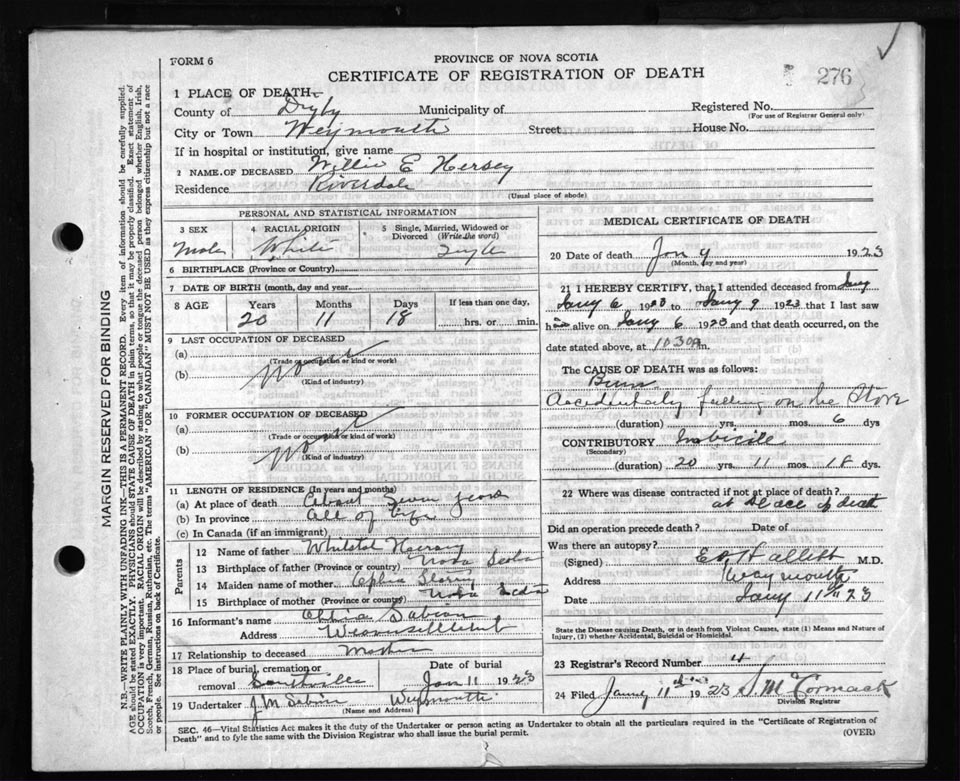 FORM 6
PROVINCE OF NOVA SCOTIA
CERTIFICATE OF REGISTRATION OF DEATH
276
1 PLACE OF DEATH—
County of Digby Municipality of
Registered No.
(For use of Registrar General only)
City or Town Weymouth Street House No.
If in hospital or institution, give name
2 NAME OF DECEASED Willie E Hersey
Residence Riverdale
(Usual place of abode)
PERSONAL AND STATISTICAL INFORMATION
3 SEX 4 RACIAL ORIGIN 5 Single, Married, Widowed or Divorced (Write the word)
Male White Single
6 BIRTHPLACE (Province or Country)
7 DATE OF BIRTH (month, day and year)
8 AGE Years Months Days If less than one day,
20 11 18 hrs. or min.
9 LAST OCCUPATION OF DECEASED
(a)
(Trade or occupation or kind of work)
(b) None
(Kind of industry)
10 FORMER OCCUPATION OF DECEASED
(a)
(Trade or occupation or kind of work)
(b) None
(Kind of industry)
11 LENGTH OF RESIDENCE (In years and months)
(a) At place of death About Seven years
(b) In province All of life
(c) In Canada (if an immigrant)
Parents
12 Name of father
13 Birthplace of father (Province or country) Nova Scotia
14 Maiden name of mother
15 Birthplace of mother (Province or country) Nova Scotia
16 Informant's name Sabian
Address
17 Relationship to deceased Mother
18 Place of burial, cremation or removal Southville
Date of burial Jan 11 1923
19 Undertaker J.M. Sabin Weymouth
(Name and Address)
MEDICAL CERTIFICATE OF DEATH
20 Date of death Jan 9 1923
(Month, day and year)
21 I HEREBY CERTIFY, that I attended deceased from Jany
Jany 6 1923 to Jany 9 1923 that I last saw
him alive on Jany 6 1923 and that death occurred, on
date stated above, at 1030 m.
The CAUSE OF DEATH was as follows:
Burn
Accidentally falling on the Stove
(duration) yrs. mos. 6 dys
CONTRIBUTORY Imbicile
(Secondary)
(duration) 20 yrs. 11 mos. 18 dys.
22 Where was disease contracted if not at place of death?
at place of death
Did an operation precede death? Date of
Was there an autopsy?
(Signed) Hallett M.D.
Address Weymouth
Date Jany 11th 23
State the Disease causing Death, or in death from Violent Causes, state (1) Means and Nature of
Injury, (2) whether Accidental, Suicidal or Homicidal.
23 Registrar's Record Number 4
24 Filed Jany 11th 1923 McCormack
Division Registrar
SEC. 46—Vital Statistics Act makes it the duty of the Undertaker or person acting as Undertaker to obtain all the particulars required in the "Certificate of Registration of
Death" and to fyle the same with the Division Registrar who shall issue the burial permit.
(OVER)
MARGIN RESERVED FOR BINDING
N.B.—WRITE PLAINLY WITH UNFADING INK—THIS IS A PERMANENT RECORD. Every item of information should be carefully supplied.
AGE should be stated EXACTLY. PHYSICIANS should STATE CAUSE OF DEATH in plain terms, so that it may be properly classified. Exact statement of
OCCUPATION is very important. RACIAL ORIGIN will be described by stating to what people or tongue the deceased person belonged whether English, Irish,
Scotch, French, German, Russian, Ruthenian, etc. The terms "AMERICAN" or "CANADIAN" MUST NOT BE USED as they express citizenship but not a race
or people. See instructions on back of Certificate.